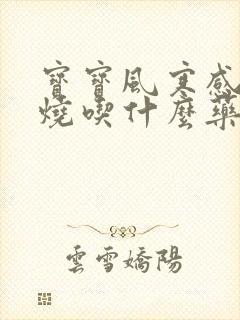 寶寶風寒感
燒喫什麼藥
雲雪嬌陽